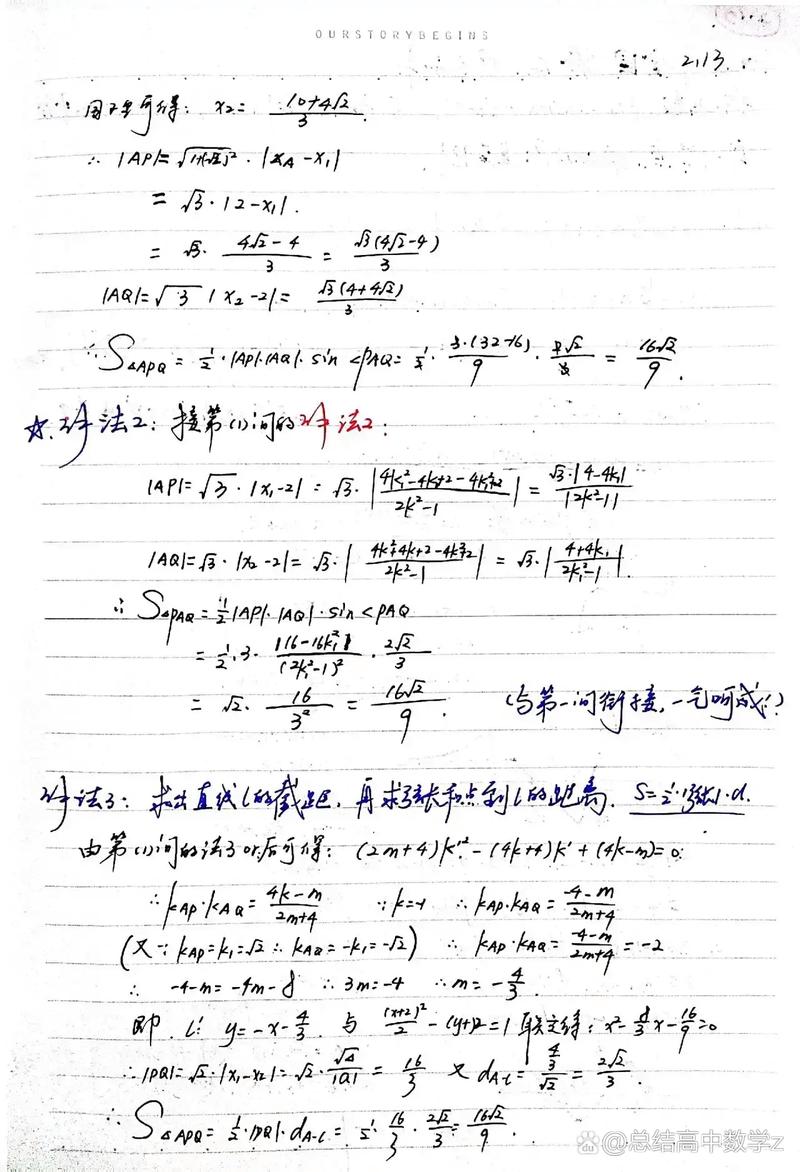 OURSTORYBEGINS
2.13.
∵ 同理可得: x₂ = (10+4√2)/3.
∴ |AP| = √(1+(√2)²) · |x_A - x₁|
= √3 · |2-x₁|.
= √3 · (4√2-4)/3 = √3(4√2-4)/3
|AQ| = √3 |x₂-2| = √3(4+4√2)/3.
∴ S△APQ = ½·|AP|·|AQ|·sin<PAQ = ½ · 3·(32-16)/9 · 2√2/3 = 16√2/9.
☆. 解法2: 接第(1)问的解法2:
|AP| = √3 · |x₁-2| = √3 · |(4k₁²-4k₁+2-4k₁²+2)/(2k²-1)| = √3·|4-4k₁|/|2k²-1|
|AQ| = √3 · |x₂-2| = √3 · |(4k²+4k+2-4k²+2)/(2k²-1)| = √3 · |(4+4k₁)/(2k₁²-1)|.
∴ S△PAQ = ½|AP|·|AQ|·sin<PAQ
= ½·3· |16-16k₁²|/(2k₁²-1)² · 2√2/3
= √2 · 16/3² = 16√2/9. (与第一问衔接,一气呵成!)
解法3: 求出直线l的截距,再求弦长和点到l的距离. S=½·|弦长|·d.
由第(1)问的法3 or 后可得: (2m+4)k'² - (4k+4)k' + (4k-m)=0.
∴ k_AP·k_AQ = (4k-m)/(2m+4) ∵ k=-1 ∴ k_AP·k_AQ = (-4-m)/(2m+4)
(又∵ k_AP=k₁=√2 ∴ k_AQ=-k₁=-√2) ∴ k_AP·k_AQ = (-4-m)/(2m+4) = -2
∴ -4-m=-4m-8 ∴ 3m=-4 ∴ m=-4/3.
即 l: y=-x-4/3. 与 (x+2)²/2 - (y+1)²=1 联立得: x²-8/3x-16/9=0
∴ |PQ| = √2·|x₁-x₂| = √2·√Δ/|a| = 16/3 又 d_A-l = (4/3)/√2 = 2√2/3.
∴ S△APQ = ½·|PQ|·d_A-l = ½·16/3·2√2/3 = 16√2/9.
@总结高中数学z